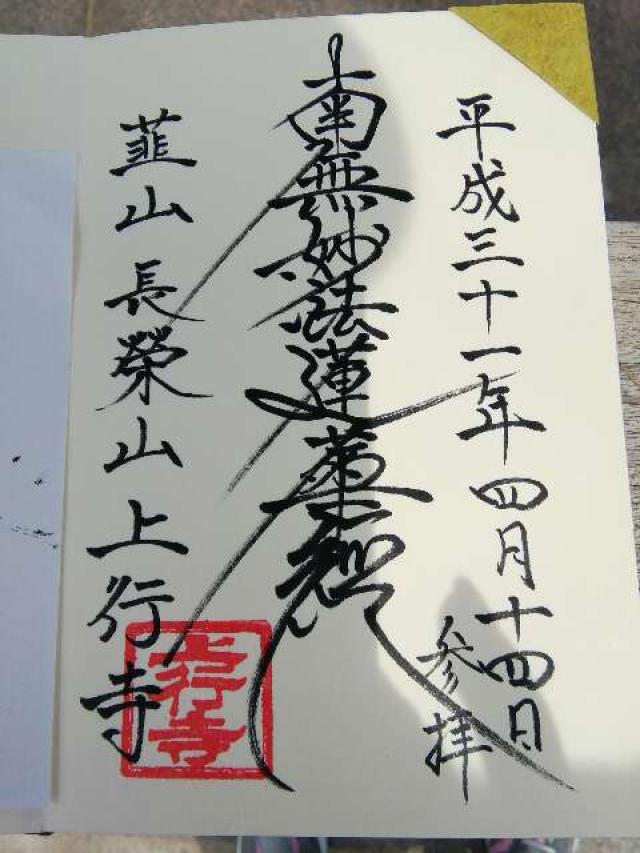 平成三十一年四月十四日
参拝
南無妙法蓮華經
韮山長榮山上行寺
上行寺